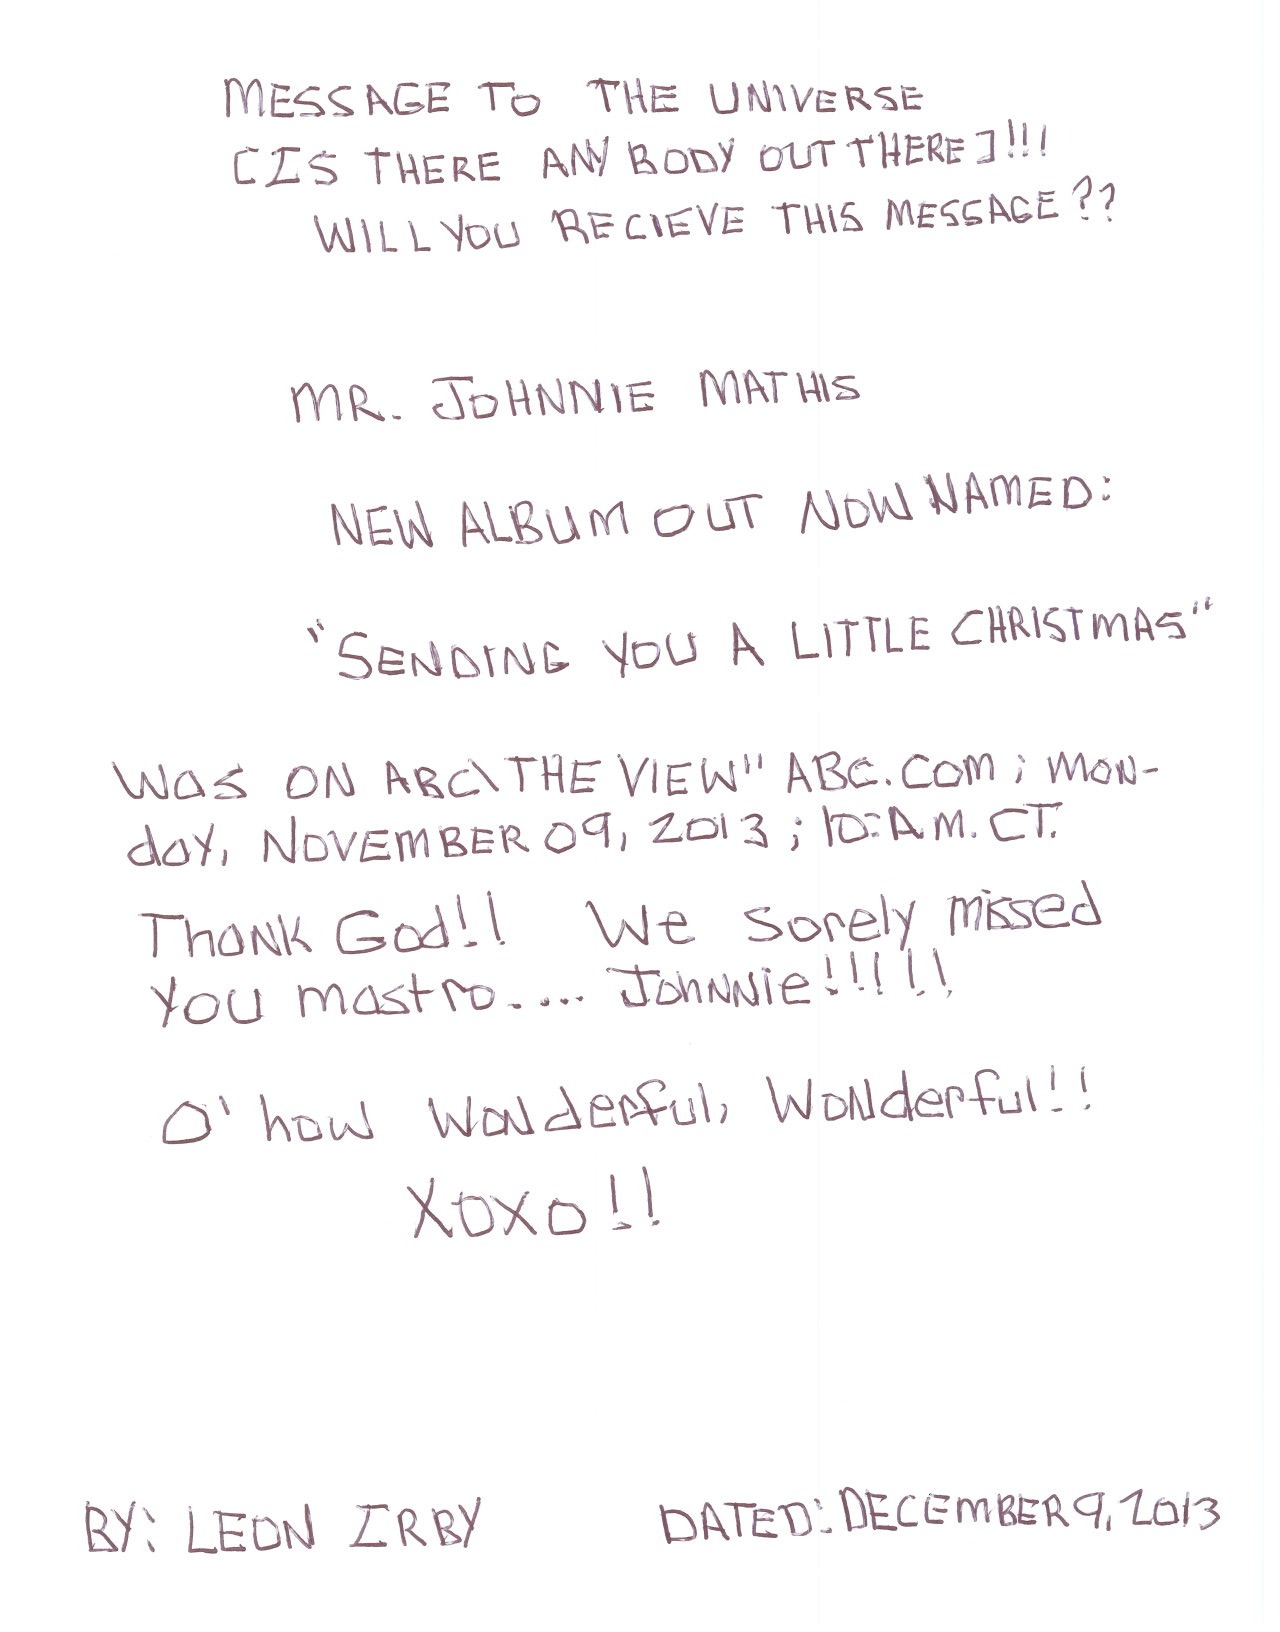 MESSAGE TO THE UNIVERSE
[IS THERE ANY BODY OUT THERE]!!!
WILL YOU RECIEVE THIS MESSAGE??
MR. JOHNNIE MATHIS
NEW ALBUM OUT NOW NAMED:
"SENDING YOU A LITTLE CHRISTMAS"
WAS ON ABC\THE VIEW" ABC.COM; MON-
day, NOVEMBER 09, 2013; 10:A.M. CT.
Thank God!! We Sorely missed
You mastro.... Johnnie!!!!!
O' how Wonderful, Wonderful!!
XOXO!!
BY: LEON IRBY DATED: DECEMBER 9, 2013